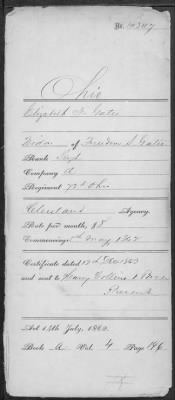 Ohio
Elizabeth F. Gates
Widow of Freedom S. Gates
Rank
Company A
Regiment 72d Ohio
Cleveland Agency.
Rate per month, $8
Commencing May 1863
Certificate dated Dec 1863
and sent to Henry
Present
Act 14th July, 1862.
Book A Vol. 4 Page 196